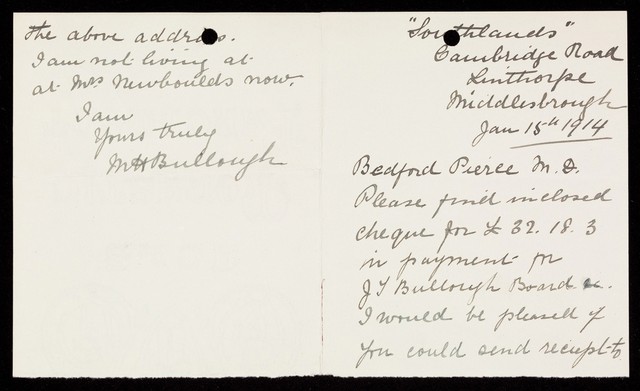 "Southlands"
Cambridge Road
Linthorpe
Middlesbrough
Jan 15th 1914
Bedford Pierce M.D.
Please find inclosed
cheque for £ 32. 18. 3
in payment for
J T Bullough Board
I would be pleased if
you could send reciept to
the above address.
I am not living at
at Mrs Newboulds now.
I am
Yours truly
M H Bullough